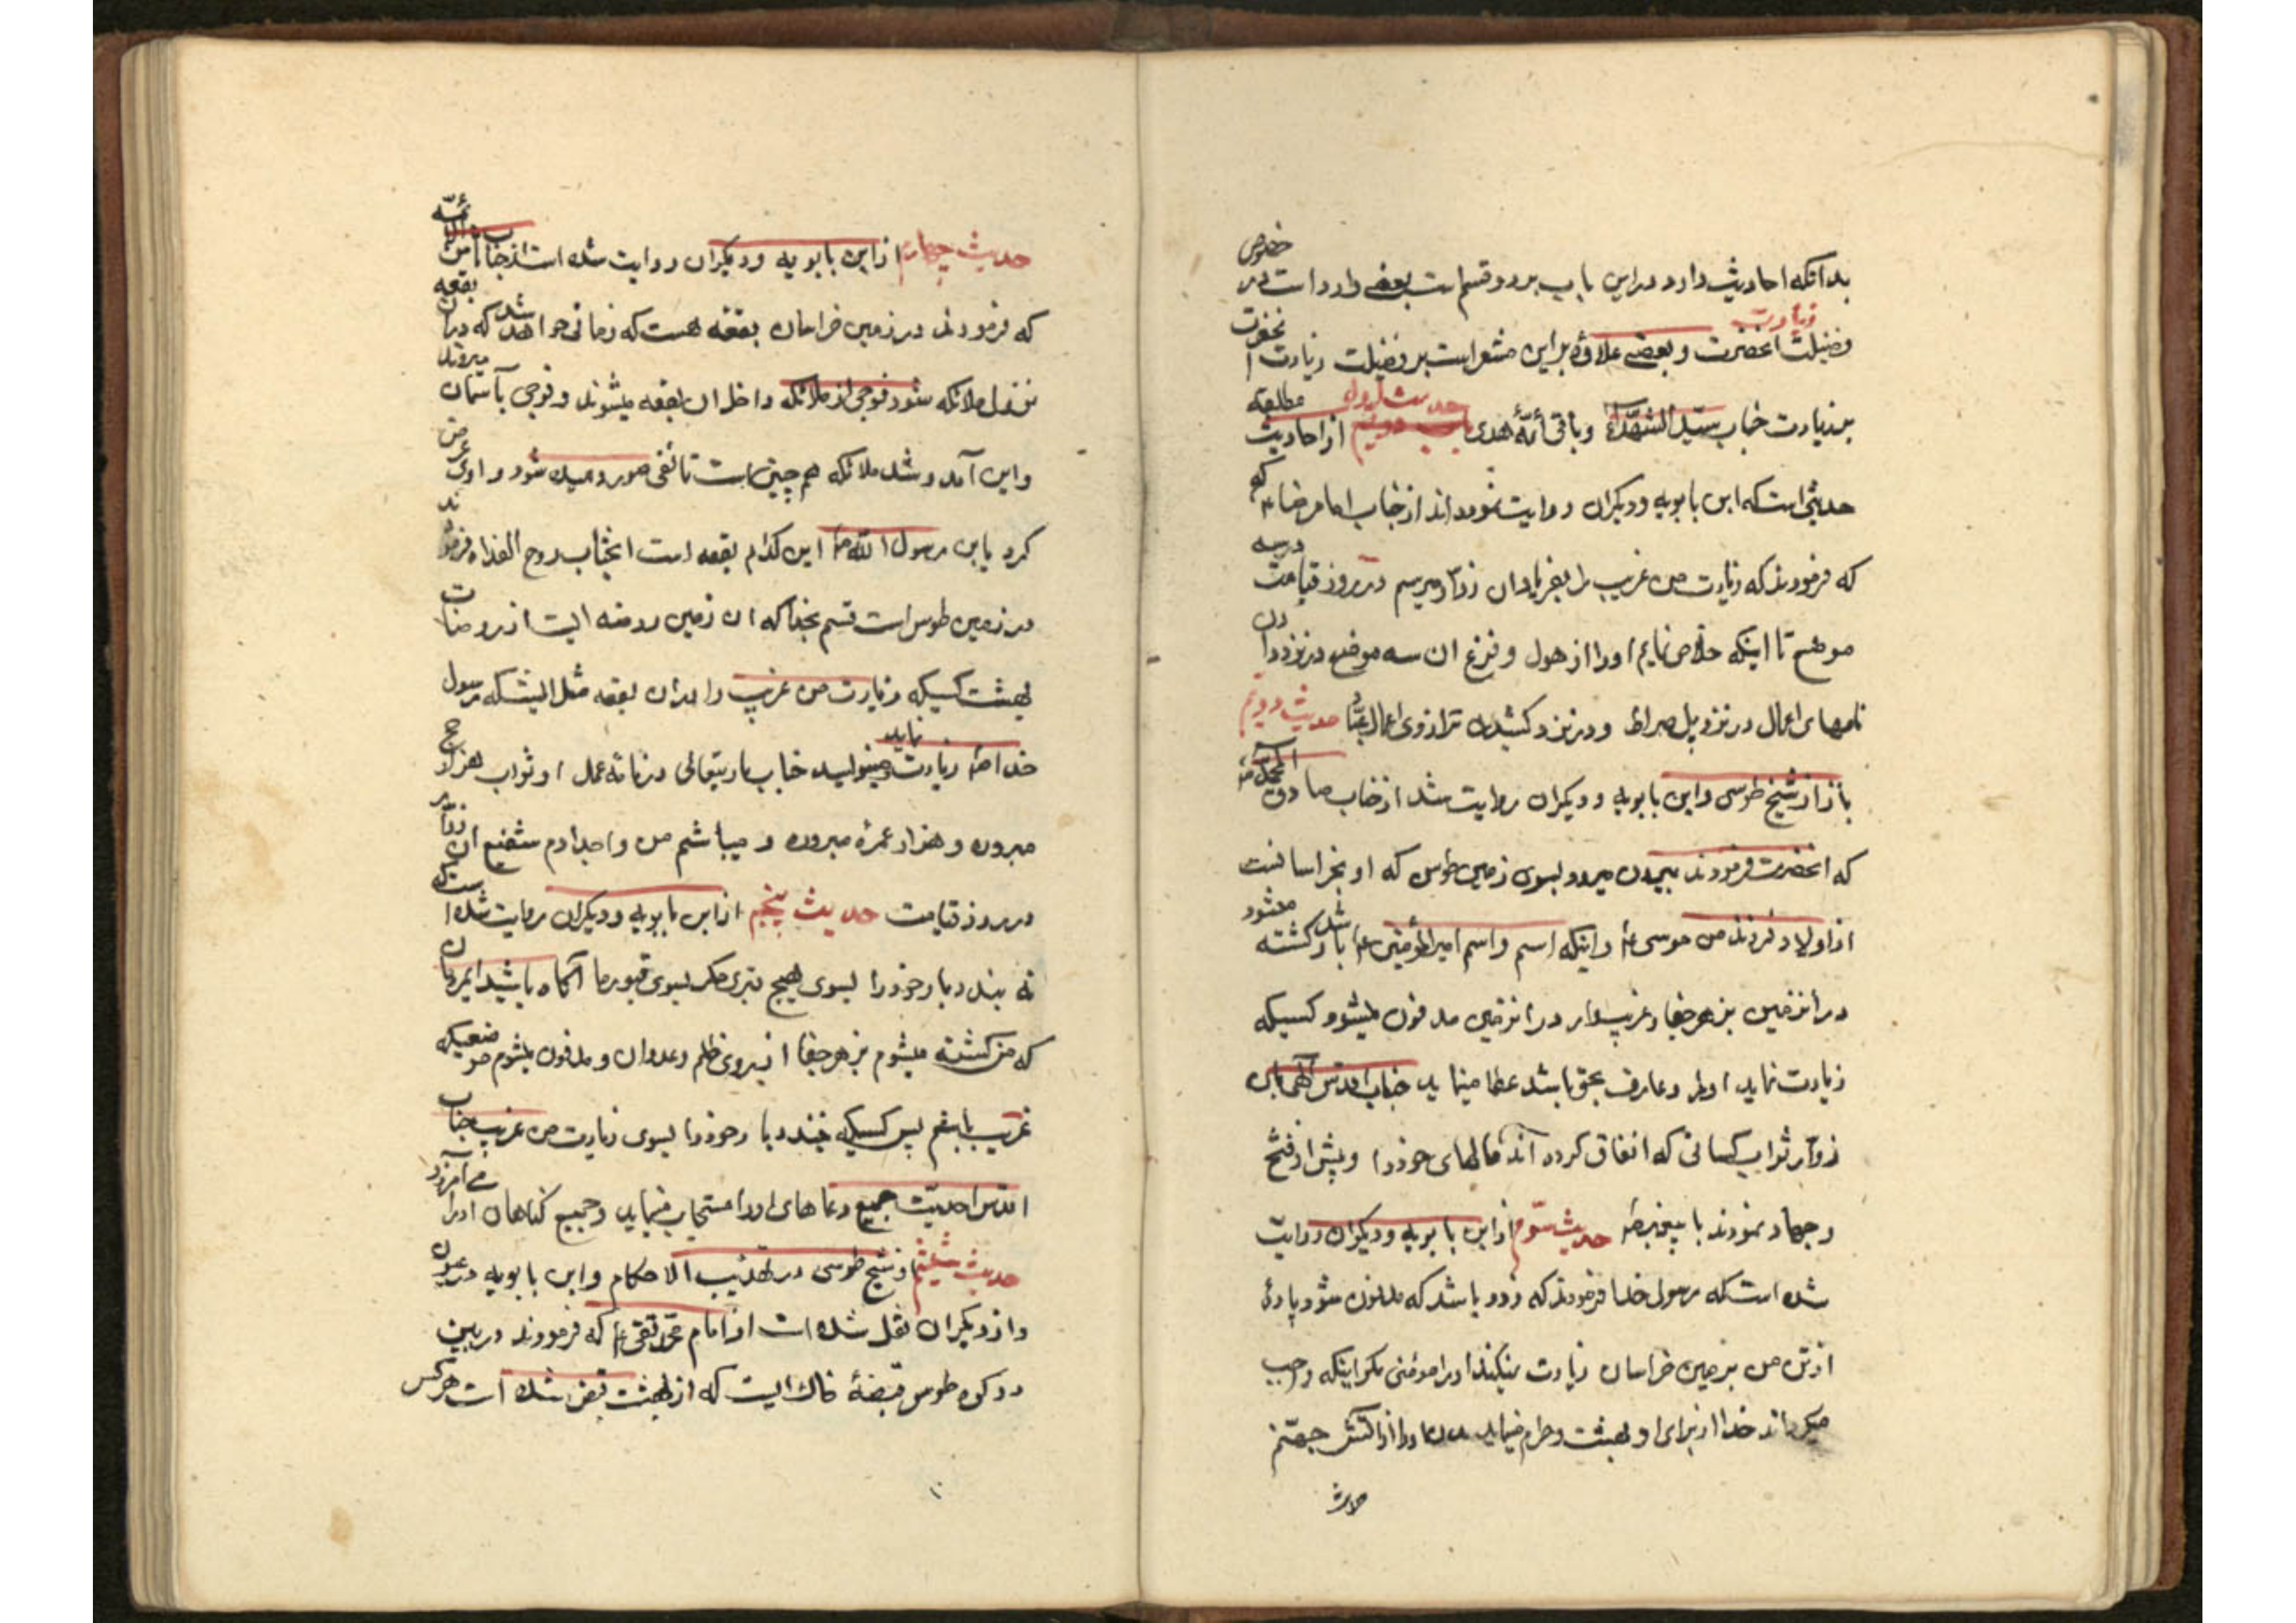 بدانکه احادیث وارد در این باب بر دو قسم است بعضی وارد است در خصوص
فضیلت زیارت انحضرت و بعضی علاوه بر این مشعر است بر فضیلت زیارت انحضرت
بر زیارت جناب سید الشهداء و باقی أئمّهٔ هدی حدیث اول از احادیث مطلقه
حدیثی است که ابن بابویه و دیکران روایت نموده اند از جناب امام رضا ع که
که فرمودند که زیارت من غریب را بفریاد ان زوّار میرسم در روز قیامت در سه
موضع تا اینکه خلاص نمایم او را از هول و فزع ان سه موضع در نزد دادن
نامهای اعمال در نزد پل صراط و در نزد کشیدن ترازوی اعمال عباد حدیث دویم
باز از شیخ طوسی و ابن بابویه و دیکران روایت شد از جناب صادق ال محمد ص
که انحضرت فرمودند بیرون میرود بسوی زمین طوس که او بخراسانست
از اولاد فرزند من موسی ع و اینکه اسم او اسم امیرالمؤمنین ع باشد کشته میشود
در آنزمین بزهر جفا و غریب وار در انزمین مدفون میشود کسیکه
زیارت نماید او را و عارف بحق باشد عطا مینماید جناب اقدس الهی بان
زوّار ثواب کسانی که انفاق کرده آند مالهای خود را و پیش از فتح
و جهاد نمودند با پیغمبر ص حدیث سّوم از ابن بابویه و دیکران روایت
شده است که رسول خدا فرمودند که زود باشد که مدفون شود پارهٔ
از تن من بزمین خراسان زیارت نمیکند او را مومنی مکر اینکه وجب
میکرداند خدا از برای او بهشت و حرام مینماید بدن او را از آتش جهنّم
حدیث چهارم از ابن بابویه و دیکران روایت شده است از جناب ثامن الائمّه
که فرمودند در زمین خراسان بقعه هست که زمانی خواهد شد که در ان بقعه
نزول ملائکه شود فوجی از ملائکه داخل ان بقعه میشوند و فوجی بآسمان میروند
و این آمد و شد ملائکه هم چنین است تا نفخ صور دمیده شود راوی عرض
کرد یابن رسول الله ص این کدام بقعه است انجناب روح الفداه فرمودند
در زمین طوس است قسم بخدا که ان زمین روضه ایست از روضات
بهشت کسیکه زیارت من غریب را در ان بقعه مثل اینستکه رسول
خدا ص زیارت نماید مینویسد جناب باریتعالی در نامهٔ عمل او ثواب هزار حج
مبروره و هزار عمرهٔ مبروره و میباشم من و اجدادم شفیع ان زوّار
در روز قیامت حدیث پنجم از ابن بابویه و دیکران روایت شده است
نه بندد بار خود را بسوی هیچ قبری مکر بسوی قبور ما آکاه باشید ایمردمان
که من کشته میشوم بزهر جفا از روی ظلم و عدوان و مدفون میشوم موضعیکه
غریب باشم پس کسیکه ببندد بار خود را بسوی زیارت من غریب جناب
اقدس احدیّت جمیع دعاهای او را مستجاب مینماید و جمیع کناهان او را می آمرزد
حدیث ششم از شیخ طوسی در تهذیب الاحکام و ابن بابویه در عیون
و از دیکران نقل شده است از امام محمّد تقی ع که فرمودند در بین
دو کوه طوس قبضهٔ خاك ایست که از بهشت قبض شده است هر کس